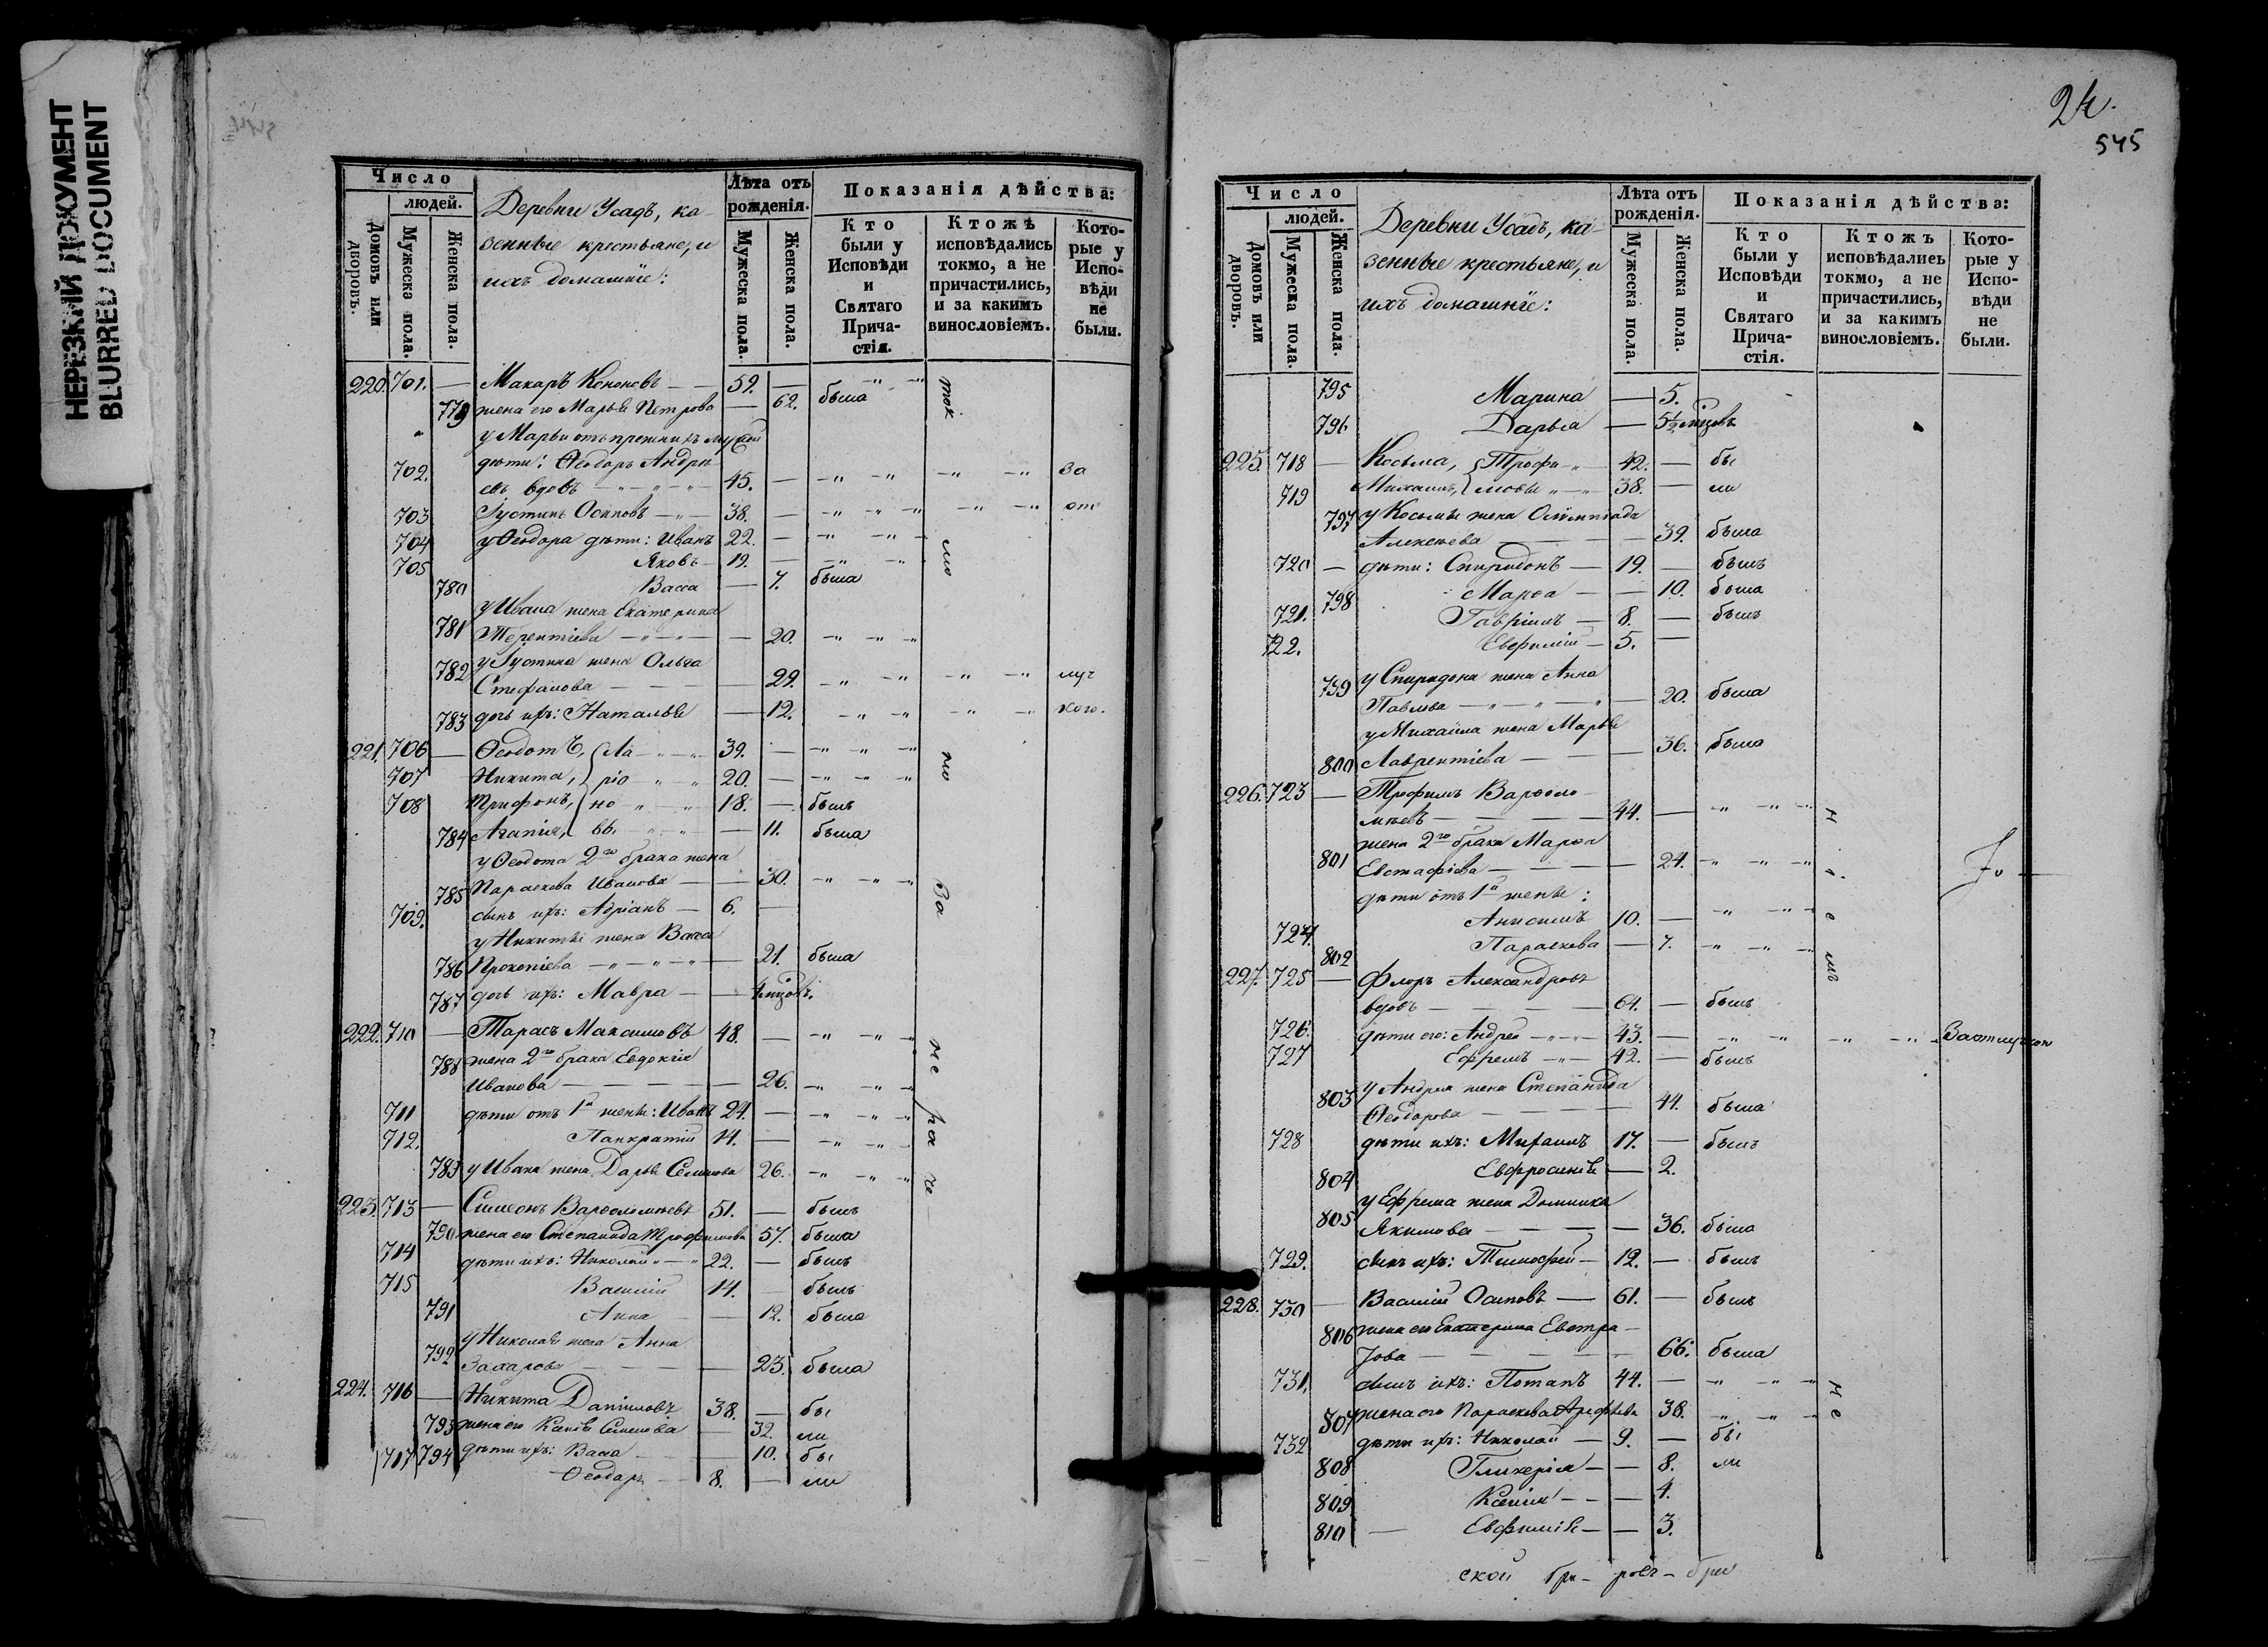 НЕРЕЗКИЙ ДОКУМЕНТ
BLURRED DOCUMENT
Число
людей.
Домовъ или дворовъ.
Мужеска пола.
Женска пола.
Деревни Усадъ, ка-
зенные крестьяне, и
ихъ домашніе:
Лѣта отъ рожденія.
Мужеска пола.
Женска пола.
Показанія дѣйства:
Кто были у Исповѣди и Святаго Прича-стія.
Ктожъ исповѣдались токмо, а не причастились, и за какимъ винословіемъ.
Кото-рые у Испо-вѣди не были.
220. 701. — Макаръ Кононовъ — 59. —
779 жена его Марья Петрова — 62. была
у Марьи отъ прежнихъ мужей
702. дѣти: Ѳеодоръ Андре
евъ вдовъ 45. — за
703 Іустинъ Осиповъ — 38. — от
704 у Ѳеодора дѣти: Иванъ 22. —
705 Яковъ — 19. —
780 Васса — 7. была
у Ивана жена Екатерина
781 Терентіева — 20.
782 у Іустина жена Ольга
Стефанова — 29. луч
783 дочь ихъ: Наталья — 12. кого.
221. 706 — Ѳеодотъ, Ла 39. —
707 Никита, ріо 20. —
708 Трифонъ, но 18. — былъ
784 Агапія, вы — 11. была
у Ѳеодота 2го брака жена
785 Параскева Иванова — 30.
709. сынъ ихъ: Адріанъ — 6. —
у Никиты жена Васса
786 Прокопіева — 21. была
787 дочь ихъ: Мавра —
222. 710 — Тарасъ Максимовъ 48. —
788 жена 2го брака Евдокія
Иванова — 26.
711 дѣти отъ 1й жены: Иванъ 24. —
712. Панкратій 14. —
789 у Ивана жена Дарья Семенова 26.
223. 713 — Симеонъ Варѳоломеевъ 51. — былъ
790 жена его Степанида Трофимова 57. была
714 дѣти ихъ: Николай 22. — былъ
715 Василій 14. — былъ
791 Анна — 12. была
792 у Николая жена Анна
Захарова — 23. была
224. 716 — Никита Даніиловъ 38. — бы
793 жена его Ксенія Семенова — 32. ли
717 794 дѣти ихъ: Васса — 10. бы
Ѳеодоръ — 8. — ли
24.
545
Число
людей.
Домовъ или дворовъ.
Мужеска пола.
Женска пола.
Деревни Усадъ, ка-
зенные крестьяне, и
ихъ домашніе:
Лѣта отъ рожденія.
Мужеска пола.
Женска пола.
Показанія дѣйства:
Кто были у Исповѣди и Святаго Прича-стія.
Ктожъ исповѣдались токмо, а не причастились, и за какимъ винословіемъ.
Кото-рые у Испо-вѣди не были.
795 Марина — 5.
796 Дарья —
225. 718 — Косьма, Трофи 42. — бы
719 Михаилъ, мовы 38. — ли
797 у Косьмы жена Олимпіада
Алексѣева — 39. была
720 — дѣти: Спиридонъ — 19. — былъ
798 Марѳа — 10. была
721. Гавріилъ — 8. — былъ
722. Евфимій — 5. —
799 у Спиридона жена Анна
Павлова — 20. была
у Михаила жена Марья
800 Лаврентіева — 36. была
226. 723 — Трофимъ Варѳоло-
мѣевъ — 44. —
жена 2го брака Марѳа
801 Евстафіева — 24.
дѣти отъ 1й жены:
724 Анисимъ 10. —
802 Параскева — 7.
227. 725 — Флоръ Александровъ
вдовъ — 64. — былъ
726. дѣти его: Андрей 43. —
727 Ефремъ 42. — былъ
803 у Андрея жена Степанида
Ѳеодорова — 44. была
728 дѣти ихъ: Михаилъ 17. — былъ
804 Евфросинія — 2.
у Ефрема жена Домника
805 Якимова — 36. была
729. сынъ ихъ: Тимофей — 12. — былъ
228. 730 — Василій Осиповъ — 61. — былъ
806 жена его Екатерина Евстра-
това — 66. была
731. сынъ ихъ: Потапъ 44. —
807 жена его Параскева Арефьева 38.
732 дѣти ихъ: Николай — 9. — бы
808 Гликерія — 8. ли
809 Ксенія — 4.
810 — Евфимія — 3.
ской